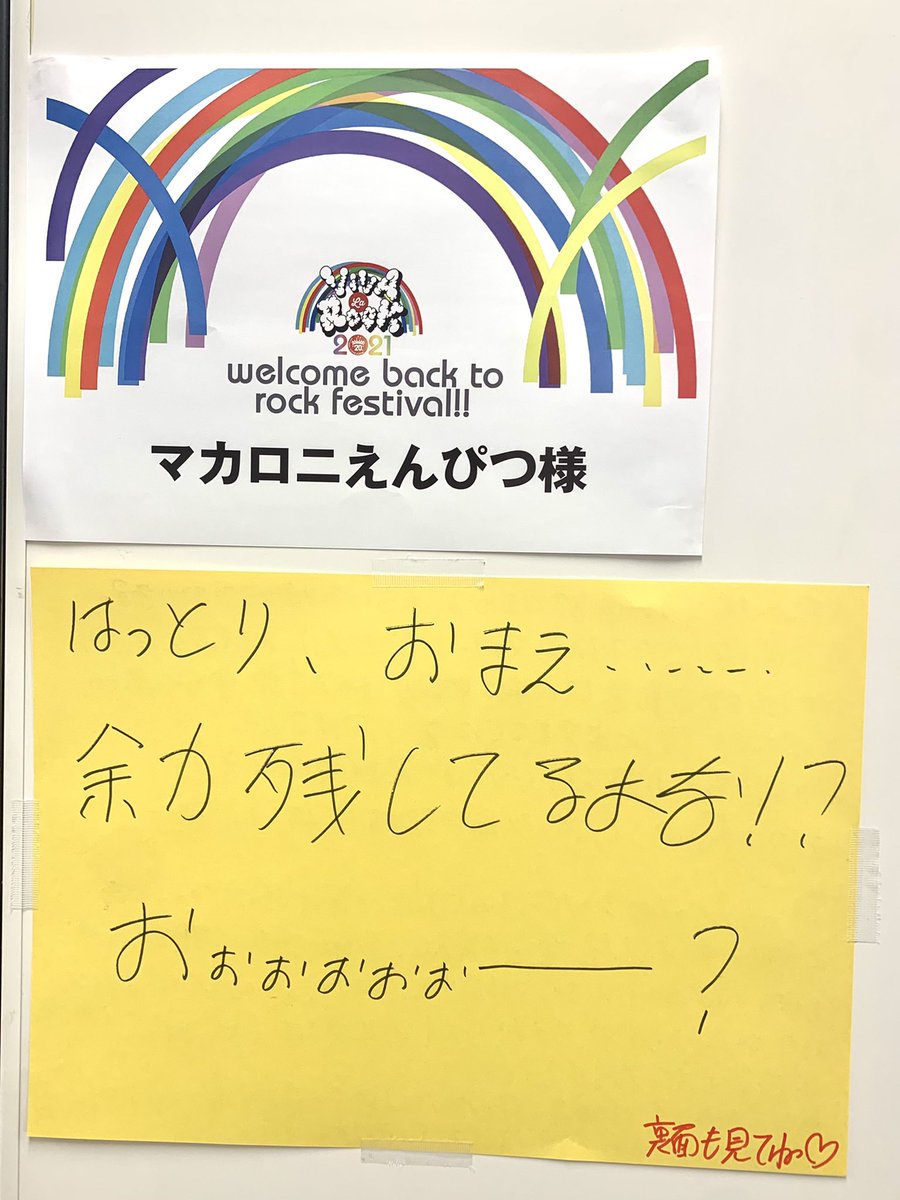 VIVA
La
Rock
2021
welcome back to
rock festival!!
マカロニえんぴつ様
はっとり、おまえ・・・・・・
余力残してるよなぁ!?
おぉぉぉぉぉー?
裏面も見てねっ♡